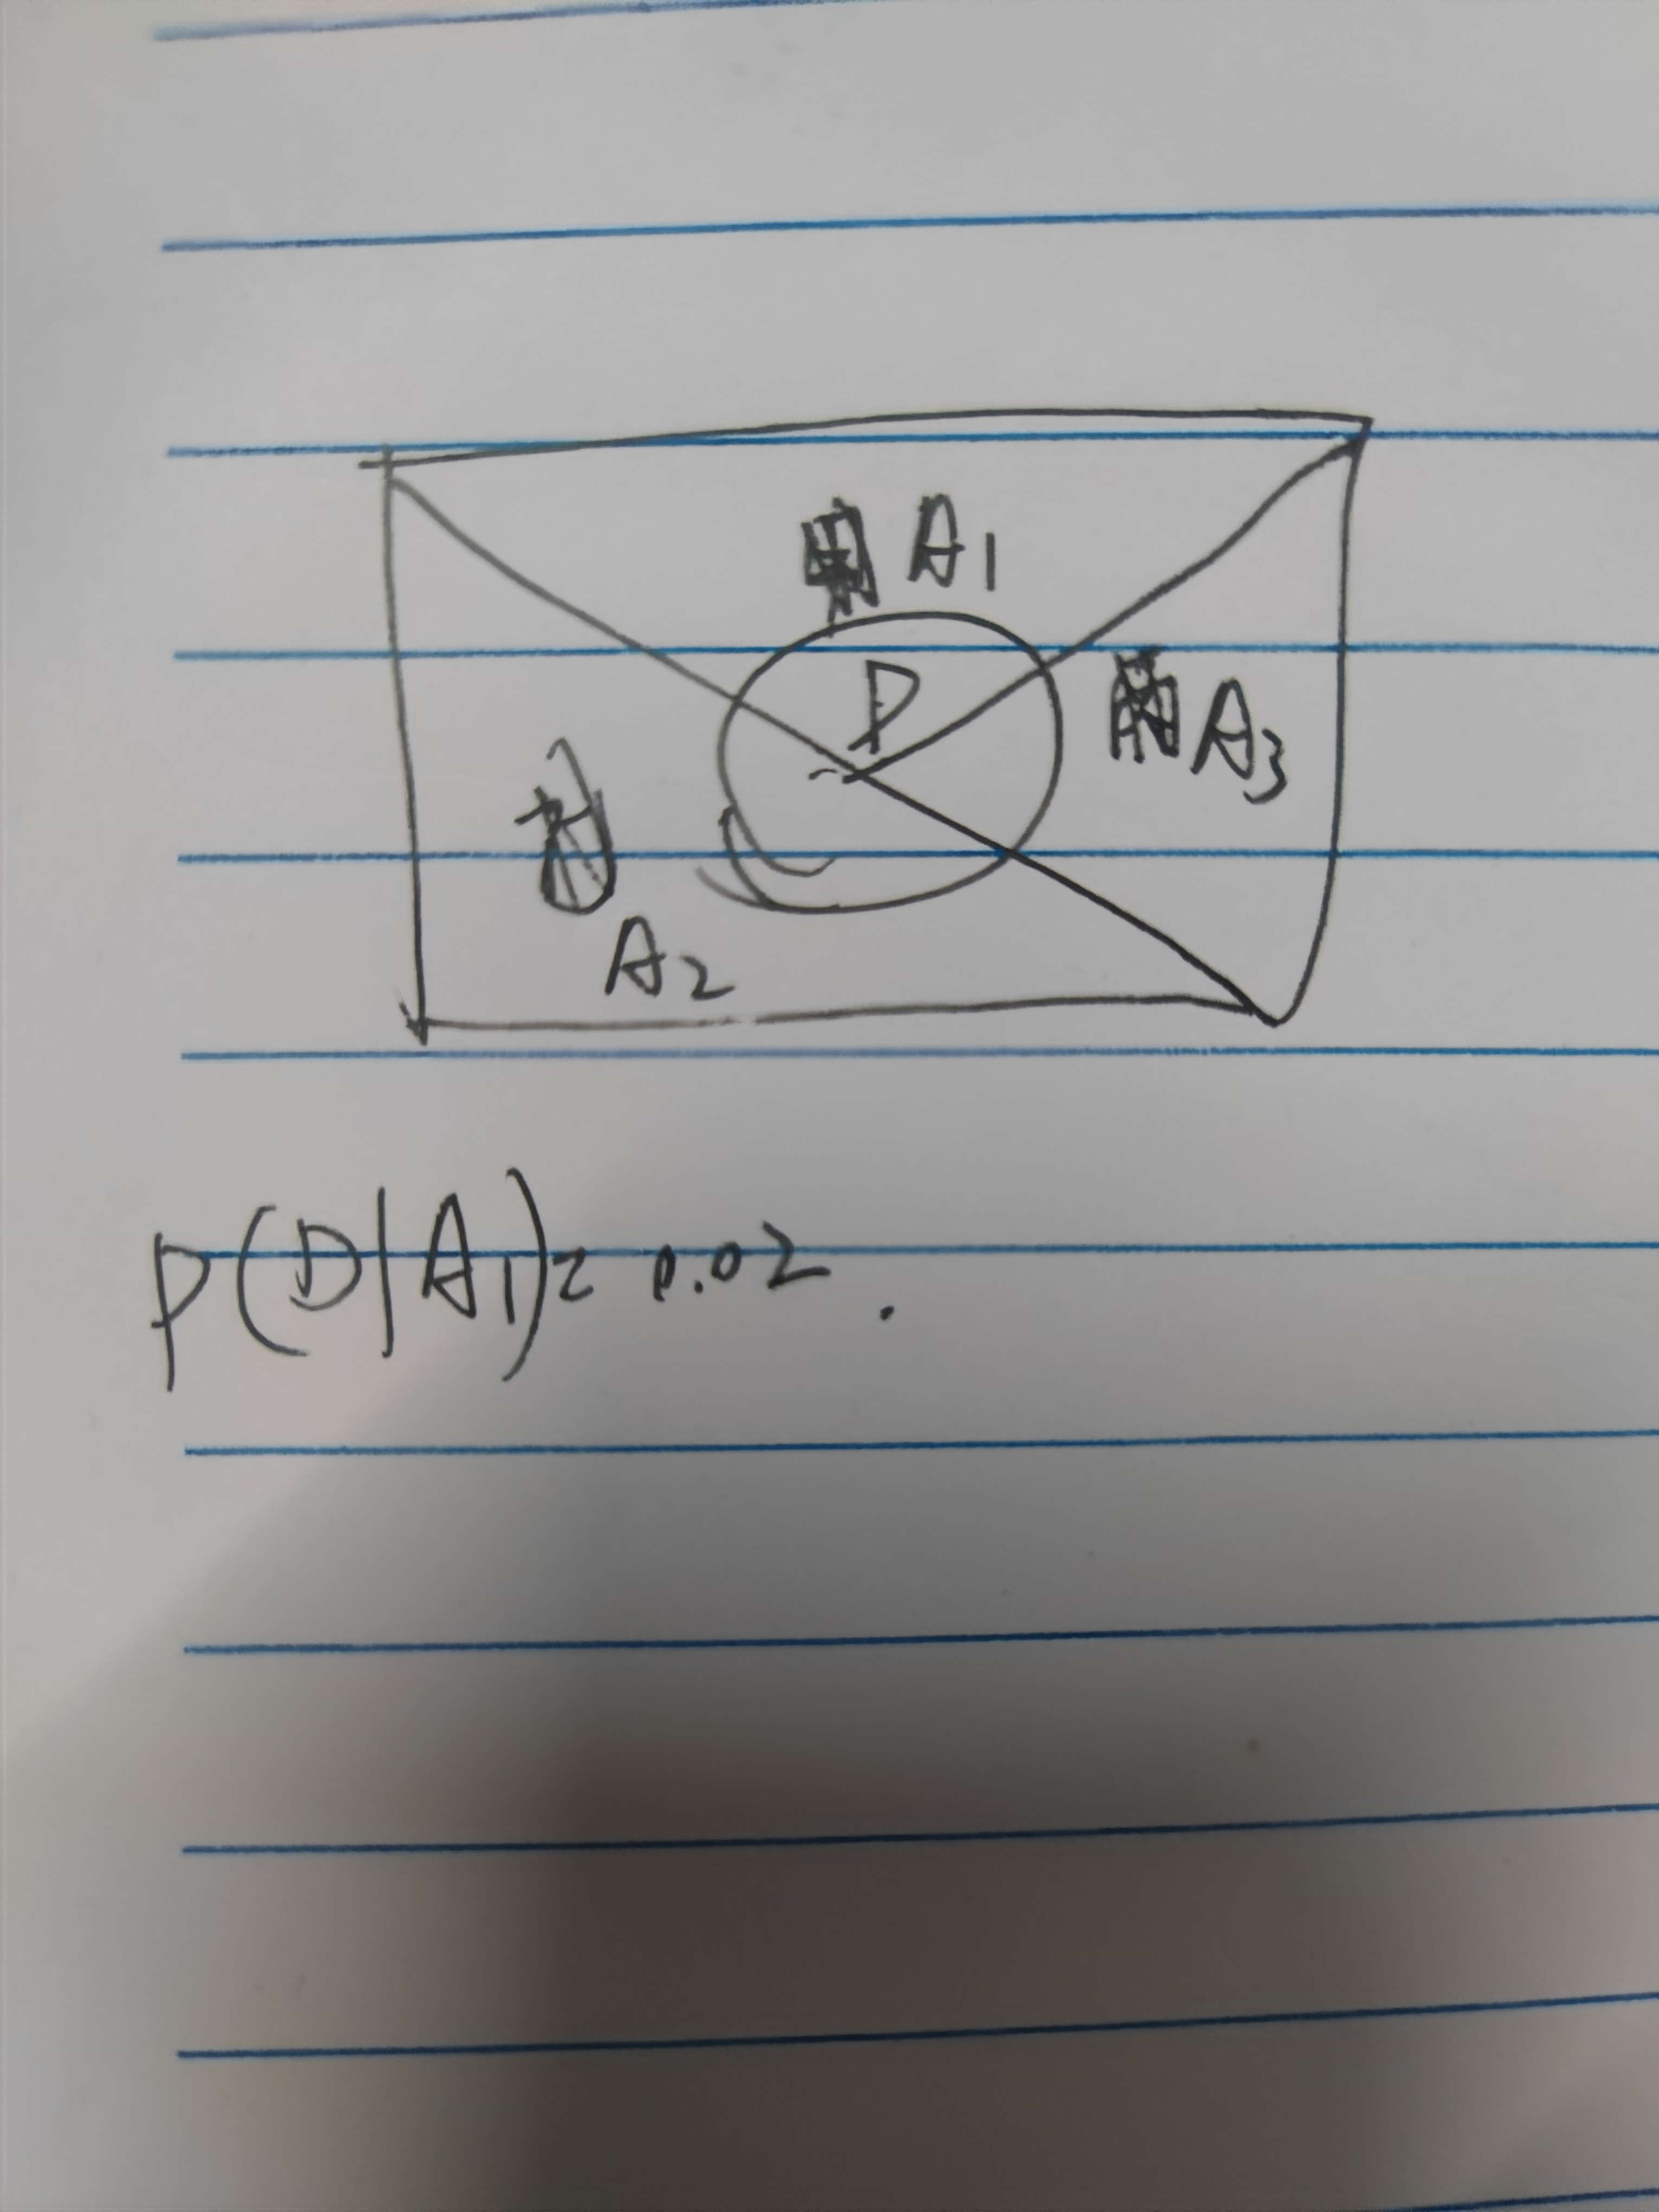 A₁
D
A₃
A₂
P(D|A₁)= 0.02.